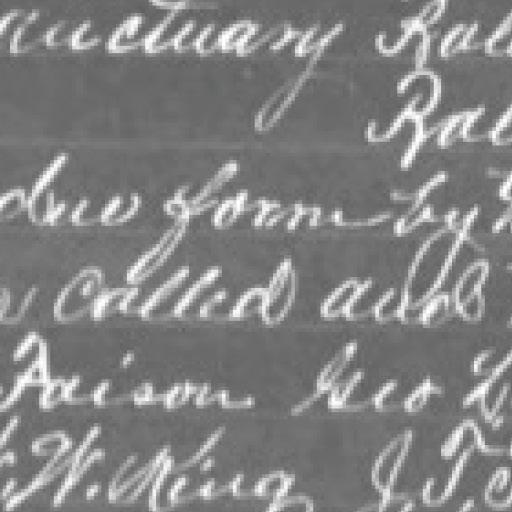 anctuary Ral
Ral
due form by
called and
Faison Geo
W. King J. T.